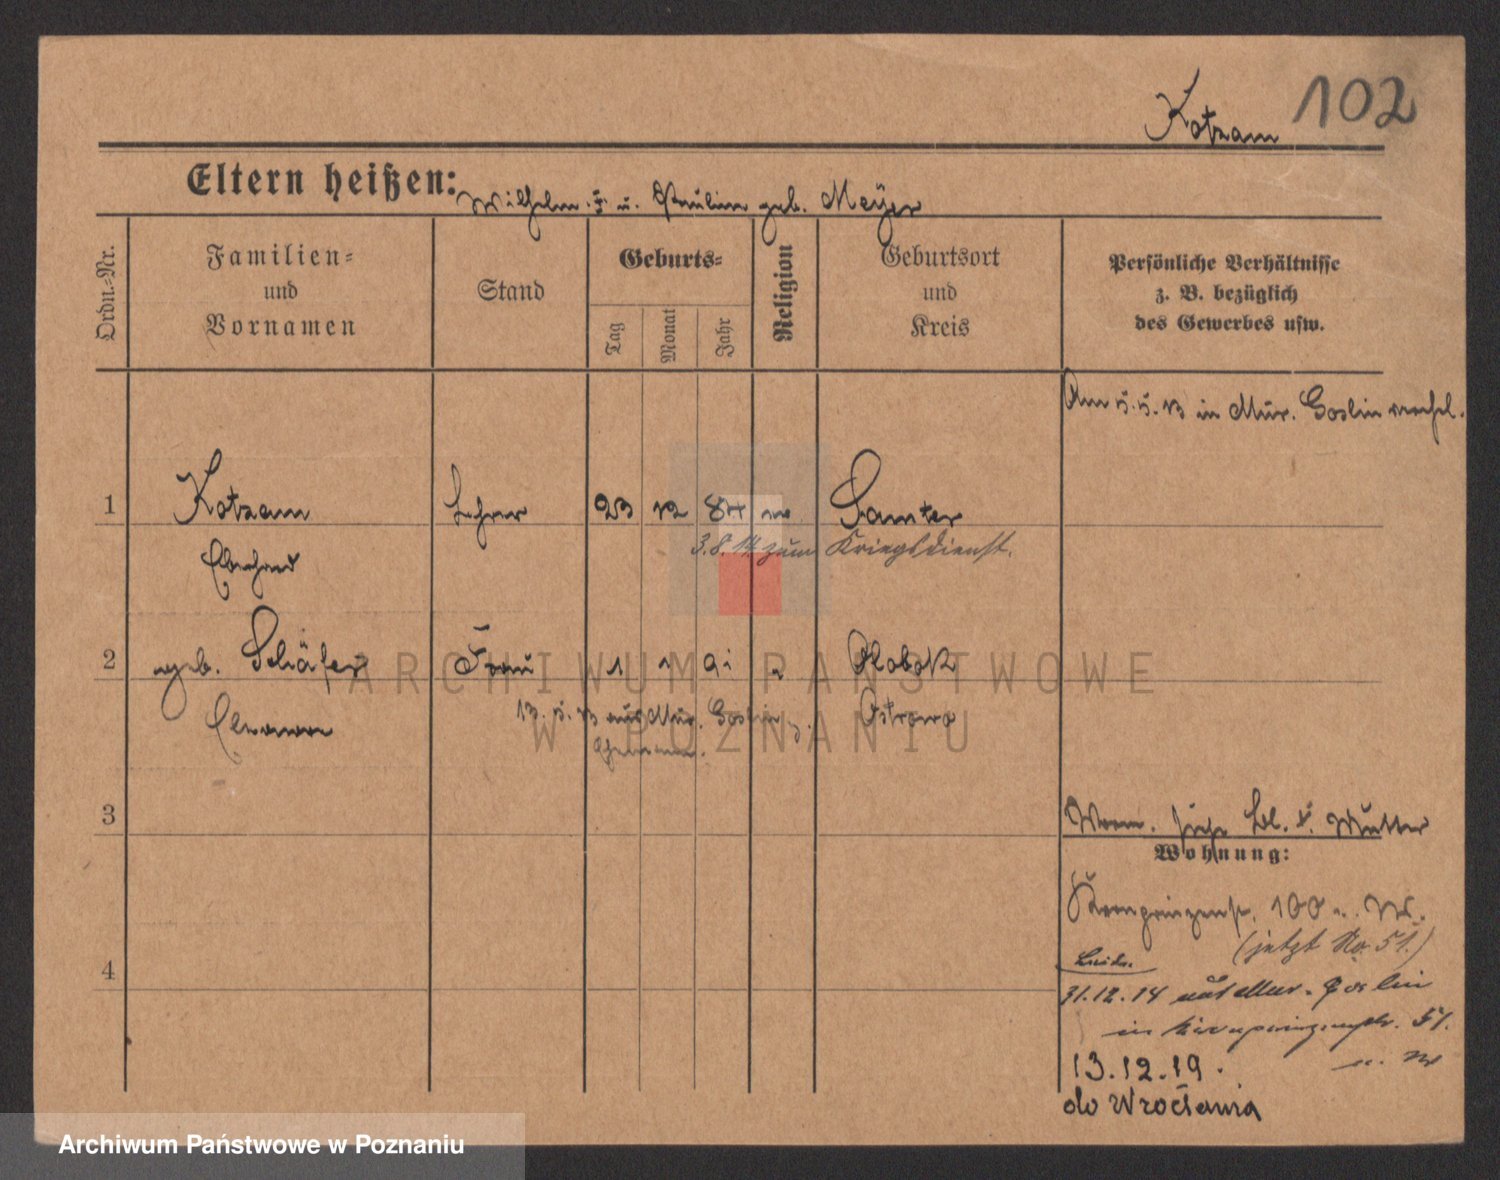 Kotzam 102
Eltern heißen: Wilhelm u. Pauline geb. Meyer
Ordn.-Nr.
Familien- und Vornamen
Stand
Geburts-
Tag
Monat
Jahr
Religion
Geburtsort und Kreis
Persönliche Verhältnisse
z. B. bezüglich
des Gewerbes usw.
Am 5.5.13 in Mur. Goslin
1 Kotzam Lehrer 23 12 84 Samter
3.8.14 zum Kriegsdienst.
Eberhard
2 geb. Schäfer Frau 1 1 91
Eleonore
13.5.13 aus Mur. Goslin
Ostrowo
3
Mutter
Wohnung:
Kronprinzenstr. 100
(jetzt No. 51.)
4
Beide
31.12.14 aus Mur. Goslin
in Kronprinzenstr. 51.
13.12.19.
do Wrocławia
ARCHIWUM PAŃSTWOWE
W POZNANIU
Archiwum Państwowe w Poznaniu